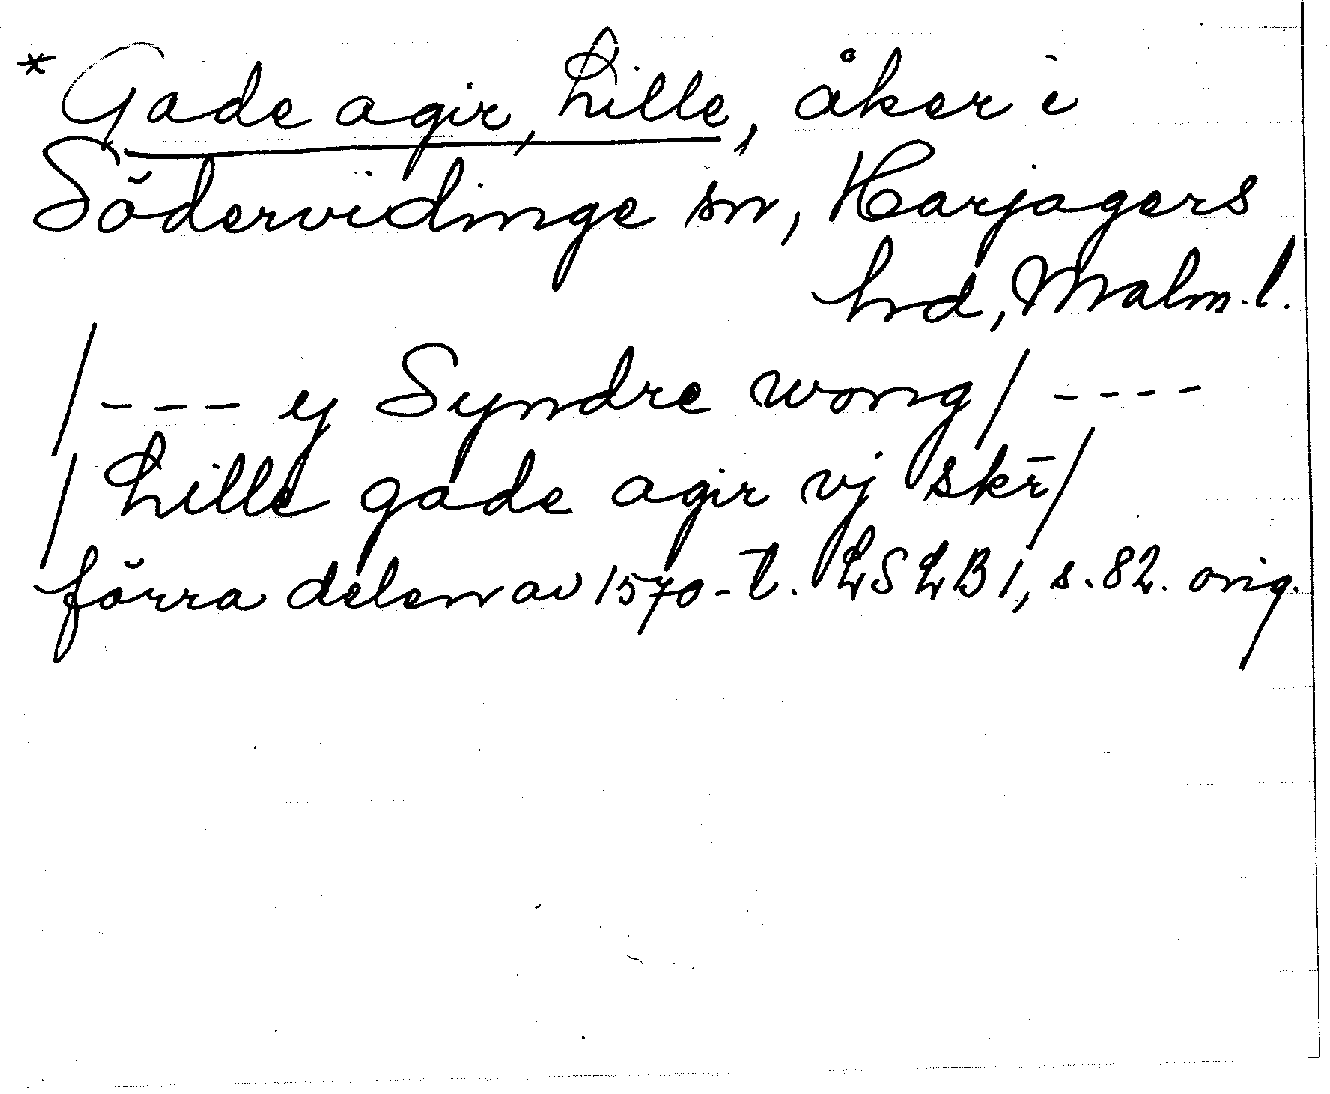 *Gade agir, Lille, åker i
Södervidinge sn, Harjagers
hrd, Malm.l.
/--- ij Syndre wong/ ----
/Lille gade agir vj skr̄/
förra delen av 1570-t. LSLB 1, s. 82. orig.